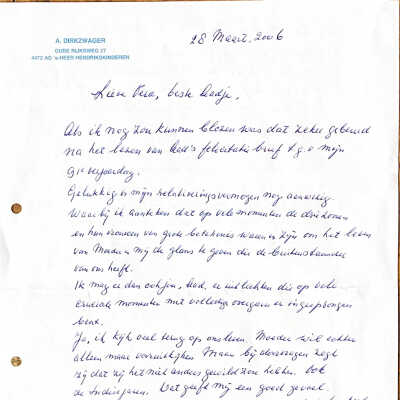 A. DIRKZWAGER
OUDE RIJKSWEG 27
4472 AD 's-HEER HENDRIKSKINDEREN
28 Maart. 2006
Lieve Vera, beste Aadje,
Als ik nog zou kunnen blozen was dat zeker gebeurd
na het lezen van Aad's felicitatie brief t.g.v mijn
90e verjaardag.
Gelukkig is mijn relativeringsvermogen nog aanwezig
Waarbij ik aanteken dat op vele momenten de drie zonen
en hun vrouwen van grote betekenis waren en zijn om het leven
van Moeder en mij de glans te geven die de buitenstaander
van ons heeft.
Ik mag er dan ook jou, Aad, er uitlichten die op vele
cruciale momenten met volledige overgave er ingesprongen
bent.
Ja, ik kijk veel terug op ons leven. Moeder wil echter
alleen maar vooruitkijken. Maar bij doorvragen zegt
zij dat zij het niet anders gewild zou hebben. Ook
de Indiejaren. Dat geeft mij een goed gevoel.